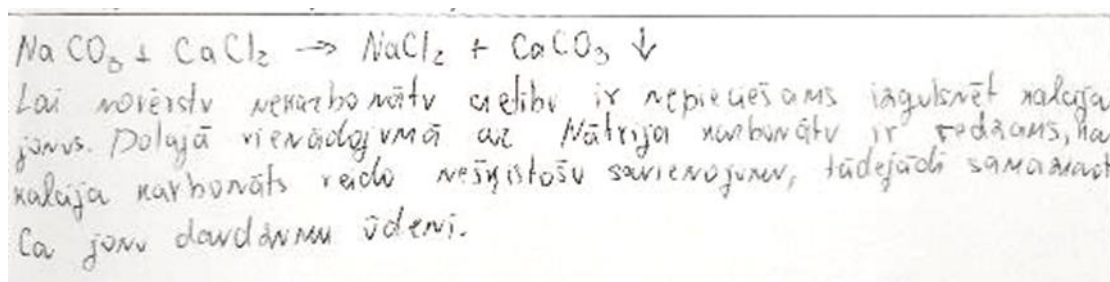 NaCO₃ + CaCl₂ → NaCl₂ + CaCO₃ ↓
Lai novērstu nekarbonātu cietību ir nepieciešams izgulsnēt kalcija
jonus. Dotajā vienādojumā ar Nātrija karbonātu ir redzams, ka
kalcija karbonāts veido nešķīstošu savienojumu, tādejādi samazinot
Ca jonu daudzumu ūdenī.